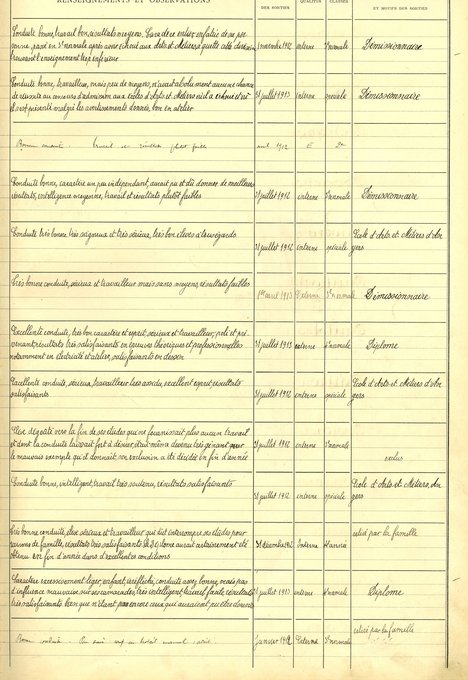 RENSEIGNEMENTS ET OBSERVATIONS DES SORTIES QUALITÉS CLASSES ET MOTIFS DES SORTIES
Conduite bonne, travail bon, résultats moyens, Caractère entier
sonne, passé en 3e normale après avoir échoué aux Arts et Métiers 1 novembre 1912 interne 3e normale Démissionnaire
trouvant l'enseignement trop inférieur
Conduite bonne, travailleur, mais peu de moyens, n'avait absolument aucune chance
de réussite au concours d'admission aux écoles d'Arts et Métiers 31 juillet 1913 interne spéciale Démissionnaire
présenté malgré les avertissements donnés, bon en atelier
Bonne conduite 1912 E 2e
Conduite bonne, caractère un peu indépendant, aurait pu et dû donner de meilleurs
résultats, intelligence moyenne, travail et résultats plutôt faibles 31 juillet 1912 interne 3e normale Démissionnaire
Conduite très bonne, très soigneux et très sérieux, très bon élève à tous égards École d'Arts et Métiers d'An
31 juillet 1912 interne spéciale gers
Très bonne conduite, sérieux et travailleur mais sans moyens, résultats faibles
1er avril 1913 Externe 3e normale Démissionnaire
Excellente conduite, très bon caractère et esprit, sérieux et travailleur, poli et pré-
venant, résultats très satisfaisants en épreuves théoriques et professionnelles 31 juillet 1913 externe 4e normale Diplome
notamment en électricité et atelier, satisfaisants en dessin
Excellente conduite, sérieux, travailleur très assidu, excellent esprit, résultats École d'Arts et Métiers d'An
satisfaisants 31 juillet 1912 interne spéciale gers
Élève dégoûté vers la fin de ses études qui ne fournissait plus aucun travail
et dont la conduite laissait fort à désirer, était même devenu très gênant pour 31 juillet 1912 interne 3e normale
le mauvais exemple qu'il donnait, son exclusion a été décidée en fin d'année exclus
Conduite bonne, intelligent, travail très soutenu, résultats satisfaisants École d'Arts et Métiers, An
31 juillet 1912 interne spéciale gers
Très bonne conduite, élève sérieux et travailleur qui dut interrompre ses études pour retiré par la famille
raisons de famille, résultats très satisfaisants, le diplome aurait certainement été 31 décembre 1912 Interne
obtenu en fin d'année dans d'excellentes conditions
Caractère excessivement léger, enfant, irréfléchi, conduite assez bonne, mais pas
d'influence mauvaise sur ses camarades, très intelligent, travail facile, résultats 31 juillet 1913 interne 4e normale Diplome
très satisfaisants bien que n'étant pas encore ceux qui auraient pu être obtenus
retiré par la famille
Bonne conduite Janvier 1912 Externe 3e normale